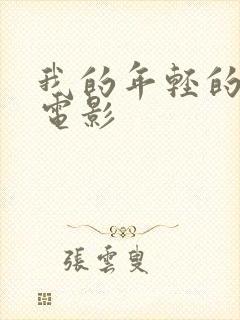 我的年輕的
電影
張雲叟